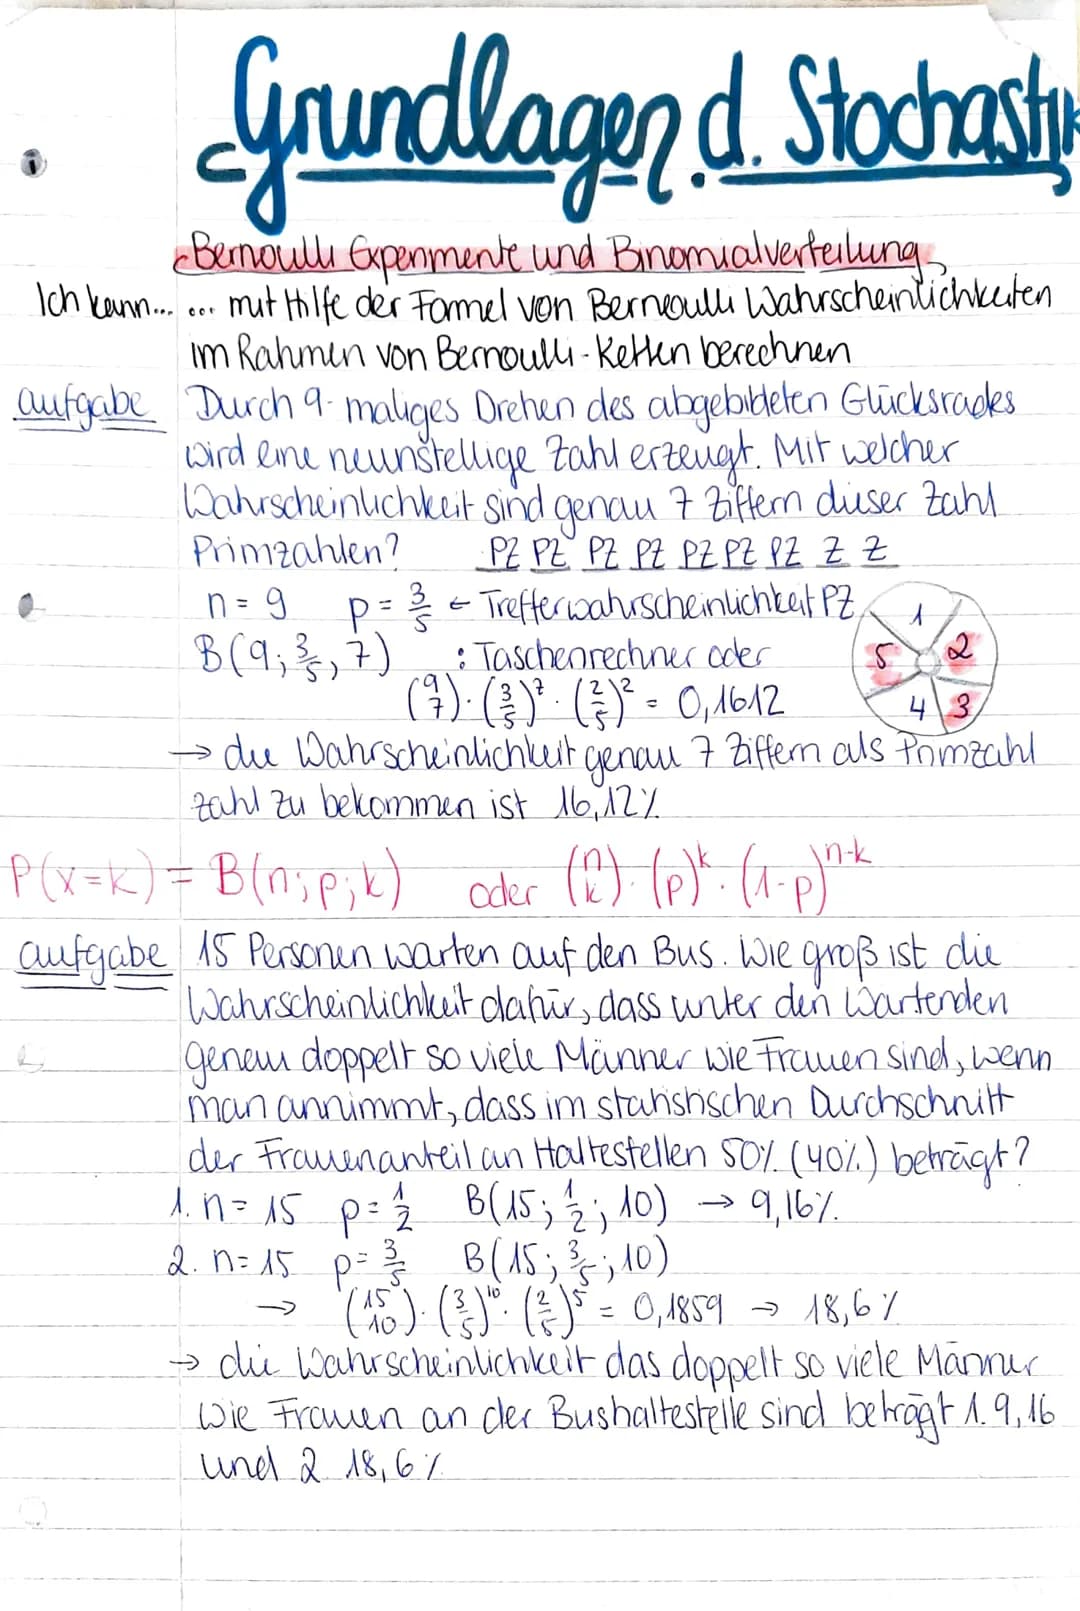 Grundlagen d. Stochastik
Bernoulli Experimente und Binomialverteilung
Ich kann... ... mit Hilfe der Formel von Berneoulli Wahrscheinlichkeiten
im Rahmen von Bernoulli-Ketten berechnen
aufgabe Durch 9-maliges Drehen des abgebildeten Glücksrades
wird eine neunstellige Zahl erzeugt. Mit welcher
Wahrscheinlichkeit sind genau 7 Ziffern dieser Zahl
Primzahlen? PZ PZ PZ PZ PZ PZ PZ Z Z
n = 9 p = 3/5 ← Trefferwahrscheinlichkeit PZ
B(9; 3/5, 7) : Taschenrechner oder
(9 7) · (3/5)^7 · (2/5)^2 = 0,1612
1
2
3
4
5
→ die Wahrscheinlichkeit genau 7 Ziffern als Primzahl
zahl zu bekommen ist 16,12%
P(x=k) = B(n; p; k) oder (n k) · (p)^k · (1-p)^n-k
aufgabe 15 Personen warten auf den Bus. Wie groß ist die
Wahrscheinlichkeit dafür, dass unter den Wartenden
genau doppelt so viele Männer wie Frauen sind, wenn
man annimmt, dass im statistischen Durchschnitt
der Frauenanteil an Haltestellen 50% (40%) beträgt?
1. n = 15 p = 1/2 B(15; 1/2; 10) → 9,16%.
2. n = 15 p = 3/5 B(15; 3/5; 10)
→ (15 10) · (3/5)^10 · (2/5)^5 = 0,1859 → 18,6%
→ die Wahrscheinlichkeit das doppelt so viele Männer
wie Frauen an der Bushaltestelle sind beträgt 1. 9,16
und 2 18,6%